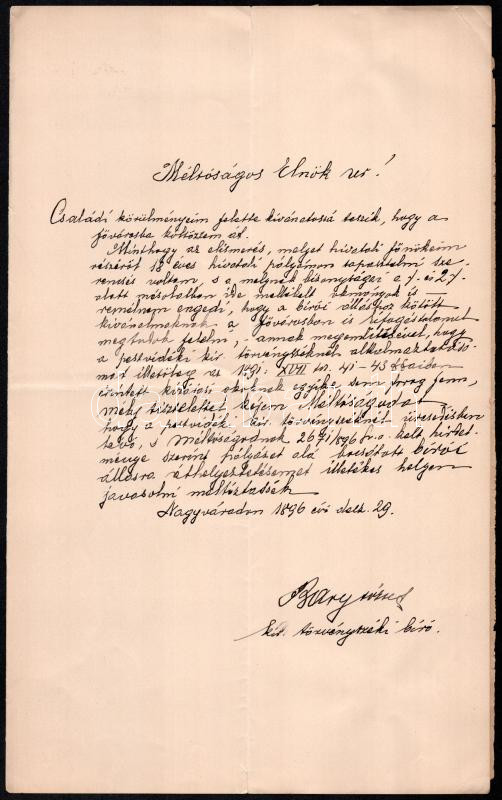 Méltóságos Elnök úr!
Családi körülményeim felette kivánatossá teszik, hogy a
fővárosba költözzem át.
Minthogy az elismerés, melyet hivatali főnökeim
részéről 18 éves hivatali pályámon tapasztalni sze-
rencsés voltam s a melynek bizonyságai a 1/. és 2/.
alatt másolatban ide mellékelt okmányok is
remélnem engedi, hogy a birói álláshoz kötött
kivánalmaknak a fővárosban is
megfelelni,
a pestvidéki kir. törvényszéknél alkalmaztatáso-
mat illetőleg az 1891: XVII tc. 41-43 §§aiban
érintett kizárási okoknak egyike sem forog fenn,
mély tisztelettel kérem Méltóságodat
hogy a pestvidéki kir. törvényszéknél üresedésben
levő, s Méltóságodnak 1896 kelt hirdet-
ménye szerint pályázat alá bocsátott birói
állásra áthelyeztetésemet illetékes helyen
javasolni méltóztassék.
Nagyváradon 1896 évi decz. 29.
Bary
kir. törvényszéki biró.